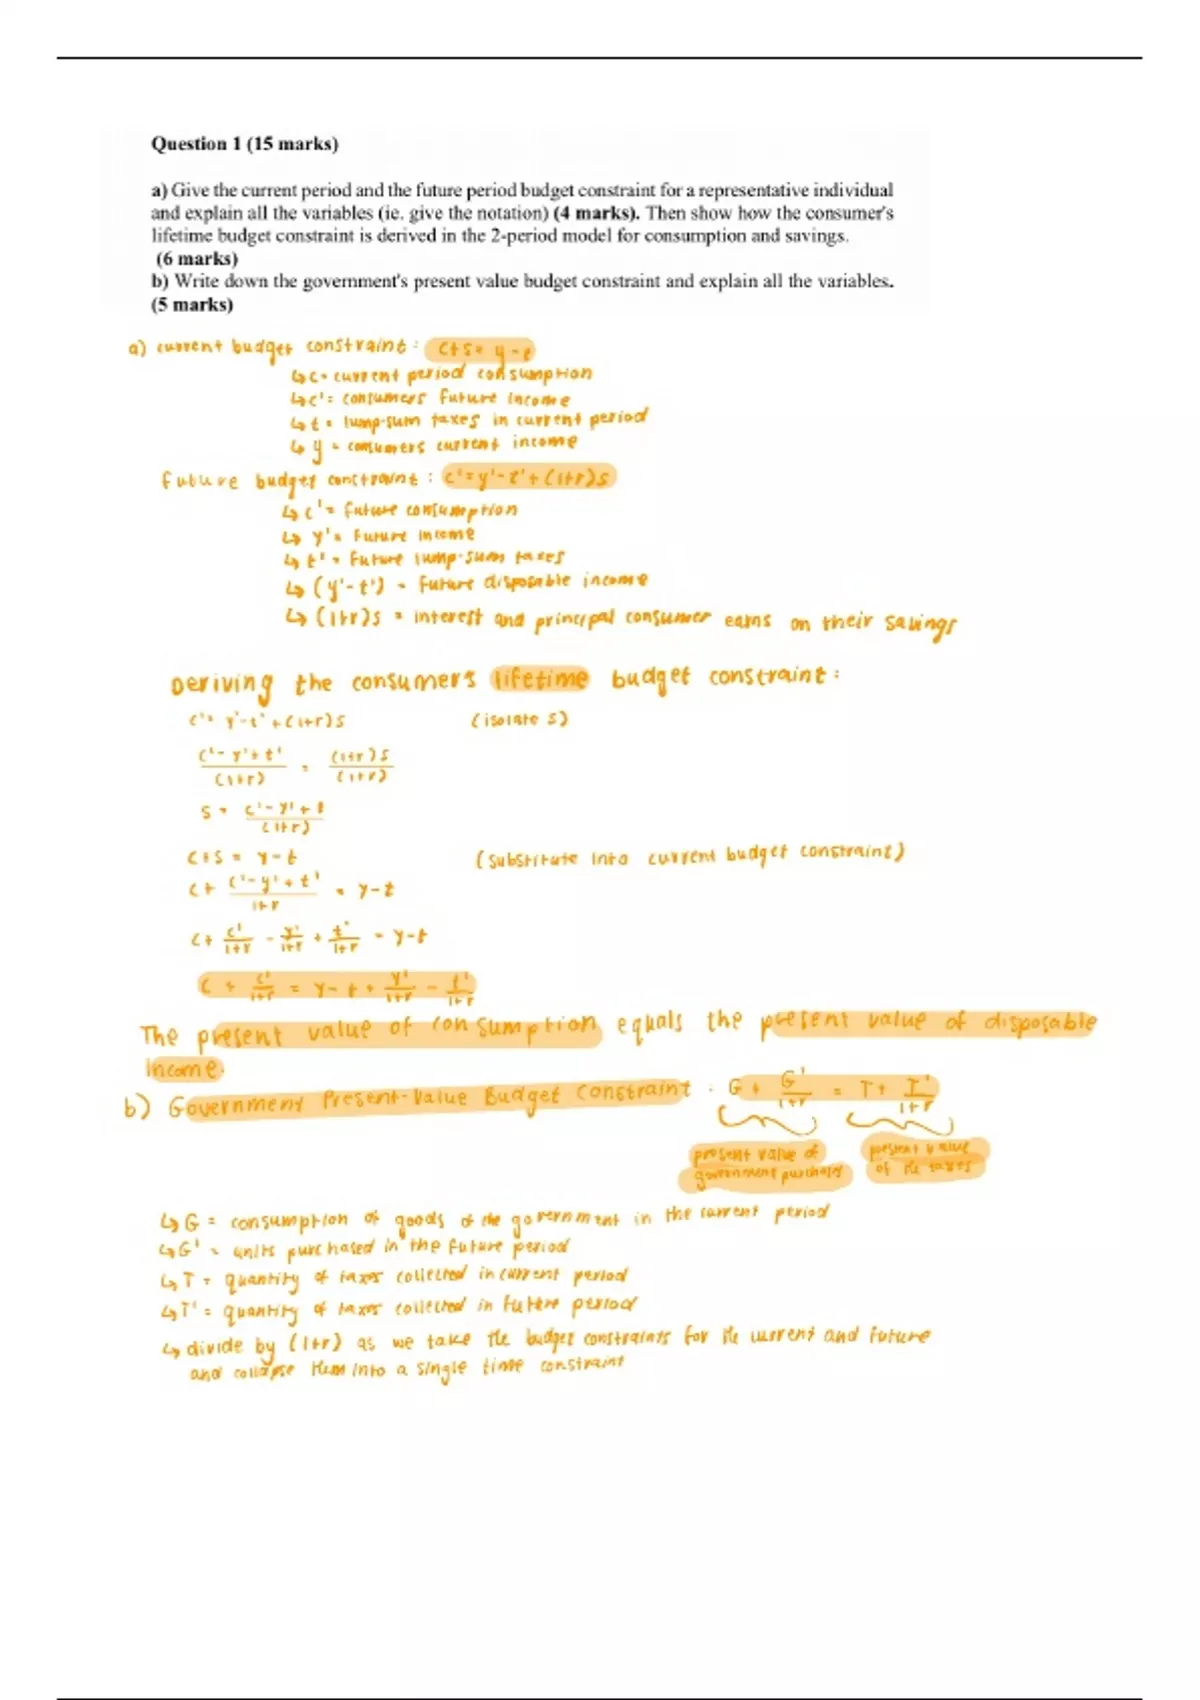 Question 1 (15 marks)
a) Give the current period and the future period budget constraint for a representative individual
and explain all the variables (ie. give the notation) (4 marks). Then show how the consumer's
lifetime budget constraint is derived in the 2-period model for consumption and savings.
(6 marks)
b) Write down the government's present value budget constraint and explain all the variables.
(5 marks)
a) current budget constraint: C+S= y-t
↳ C= current period consumption
↳ C'= consumers future income
↳ t = lump-sum taxes in current period
↳ y = consumers current income
future budget constraint : C'=y'-t'+(1+r)S
↳ C'= future consumption
↳ y'= future income
↳ t' = future lump-sum taxes
↳ (y'-t') = future disposable income
↳ (1+r)S = interest and principal consumer earns on their savings
Deriving the consumers lifetime budget constraint:
C'= y'-t'+(1+r)S (isolate S)
C'-y'+t' / (1+r) = (1+r)S / (1+r)
S = C'-y'+t / (1+r)
C+S = y-t (substitute into current budget constraint)
C+ C'-y'+t' / 1+r = y-t
C+ C'/1+r - y'/1+r + t'/1+r = y-t
C + C'/1+r = y-t+ y'/1+r - t'/1+r
The present value of consumption equals the present value of disposable
income.
b) Government Present-Value Budget Constraint : G+ G'/1+r = T+ T'/1+r
present value of government purchases
present value of the taxes
↳ G = consumption of goods of the government in the current period
↳ G' = units purchased in the future period
↳ T = quantity of taxes collected in current period
↳ T' = quantity of taxes collected in future period
↳ divide by (1+r) as we take the budget constraints for the current and future
and collapse them into a single time constraint